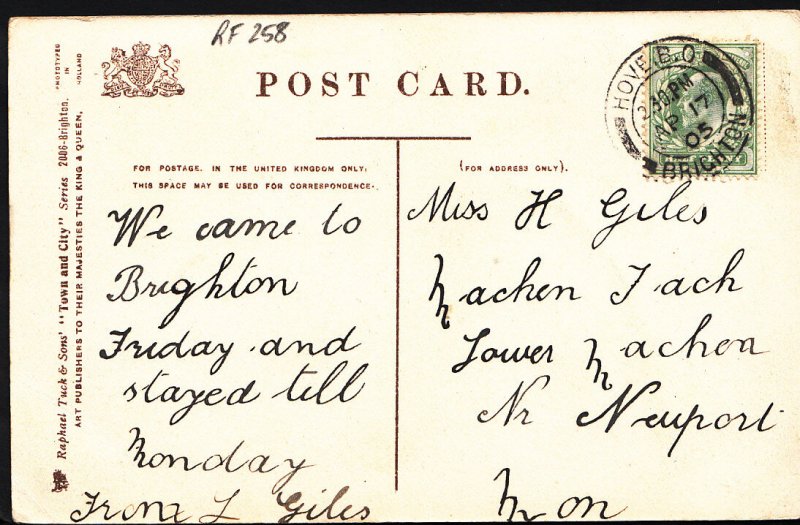 RF 258
POST CARD.
FOR POSTAGE. IN THE UNITED KINGDOM ONLY,
THIS SPACE MAY BE USED FOR CORRESPONDENCE.
(FOR ADDRESS ONLY).
We came to
Brighton
Friday and
stayed till
Monday
From L Giles
Miss H Giles
Machen Fach
Lower Machen
Nr Newport
Mon
HOVE B.O.
2.30PM
AP 17
05
BRIGHTON
PHOTOTYPED
IN
HOLLAND
Raphael Tuck & Sons' "Town and City" Series 2006-Brighton.
ART PUBLISHERS TO THEIR MAJESTIES THE KING & QUEEN,